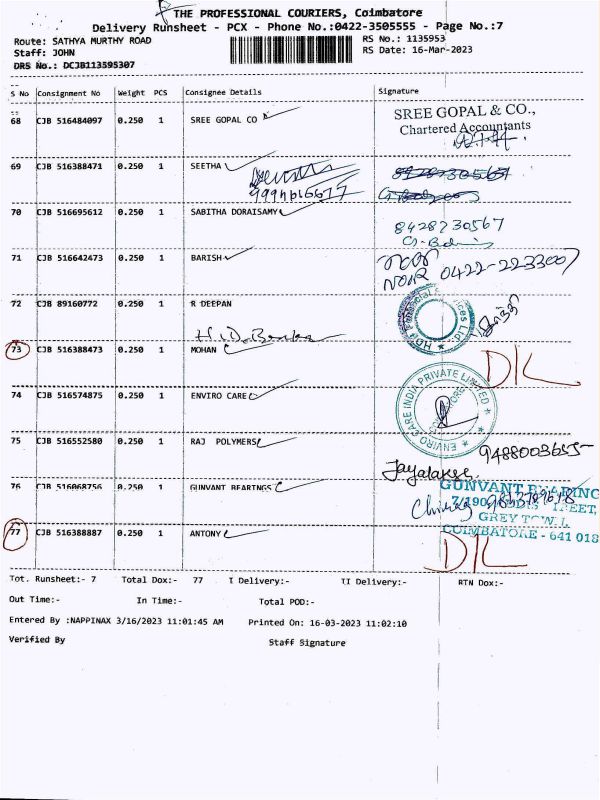 THE PROFESSIONAL COURIERS, Coimbatore
Delivery Runsheet - PCX - Phone No.:0422-3505555 - Page No.:7
Route: SATHYA MURTHY ROAD
RS No.: 1135953
Staff: JOHN
RS Date: 16-Mar-2023
DRS No.: DCJB113595307
S No Consignment No Weight PCS Consignee Details Signature
68 CJB 516484097 0.250 1 SREE GOPAL CO
SREE GOPAL & CO.,
Chartered Accountants
69 CJB 516388471 0.250 1 SEETHA
8428230567
70 CJB 516695612 0.250 1 SABITHA DORAISAMY
8428230567
71 CJB 516642473 0.250 1 BARISH
0422-2233007
72 CJB 89160772 0.250 1 R DEEPAN
73 CJB 516388473 0.250 1 MOHAN
DL
74 CJB 516574875 0.250 1 ENVIRO CARE
ENVIRO CARE INDIA PRIVATE LIMITED
75 CJB 516552580 0.250 1 RAJ POLYMERS
9488003655
76 CJB 516068756 0.250 1 GUNVANT BEARINGS
GUNVANT BEARING
GREY TOWN,
COIMBATORE - 641 018
77 CJB 516388887 0.250 1 ANTONY
DL
Tot. Runsheet:- 7 Total Dox:- 77 I Delivery:- II Delivery:- RTN Dox:-
Out Time:- In Time:- Total POD:-
Entered By :NAPPINAX 3/16/2023 11:01:45 AM Printed On: 16-03-2023 11:02:10
Verified By Staff Signature